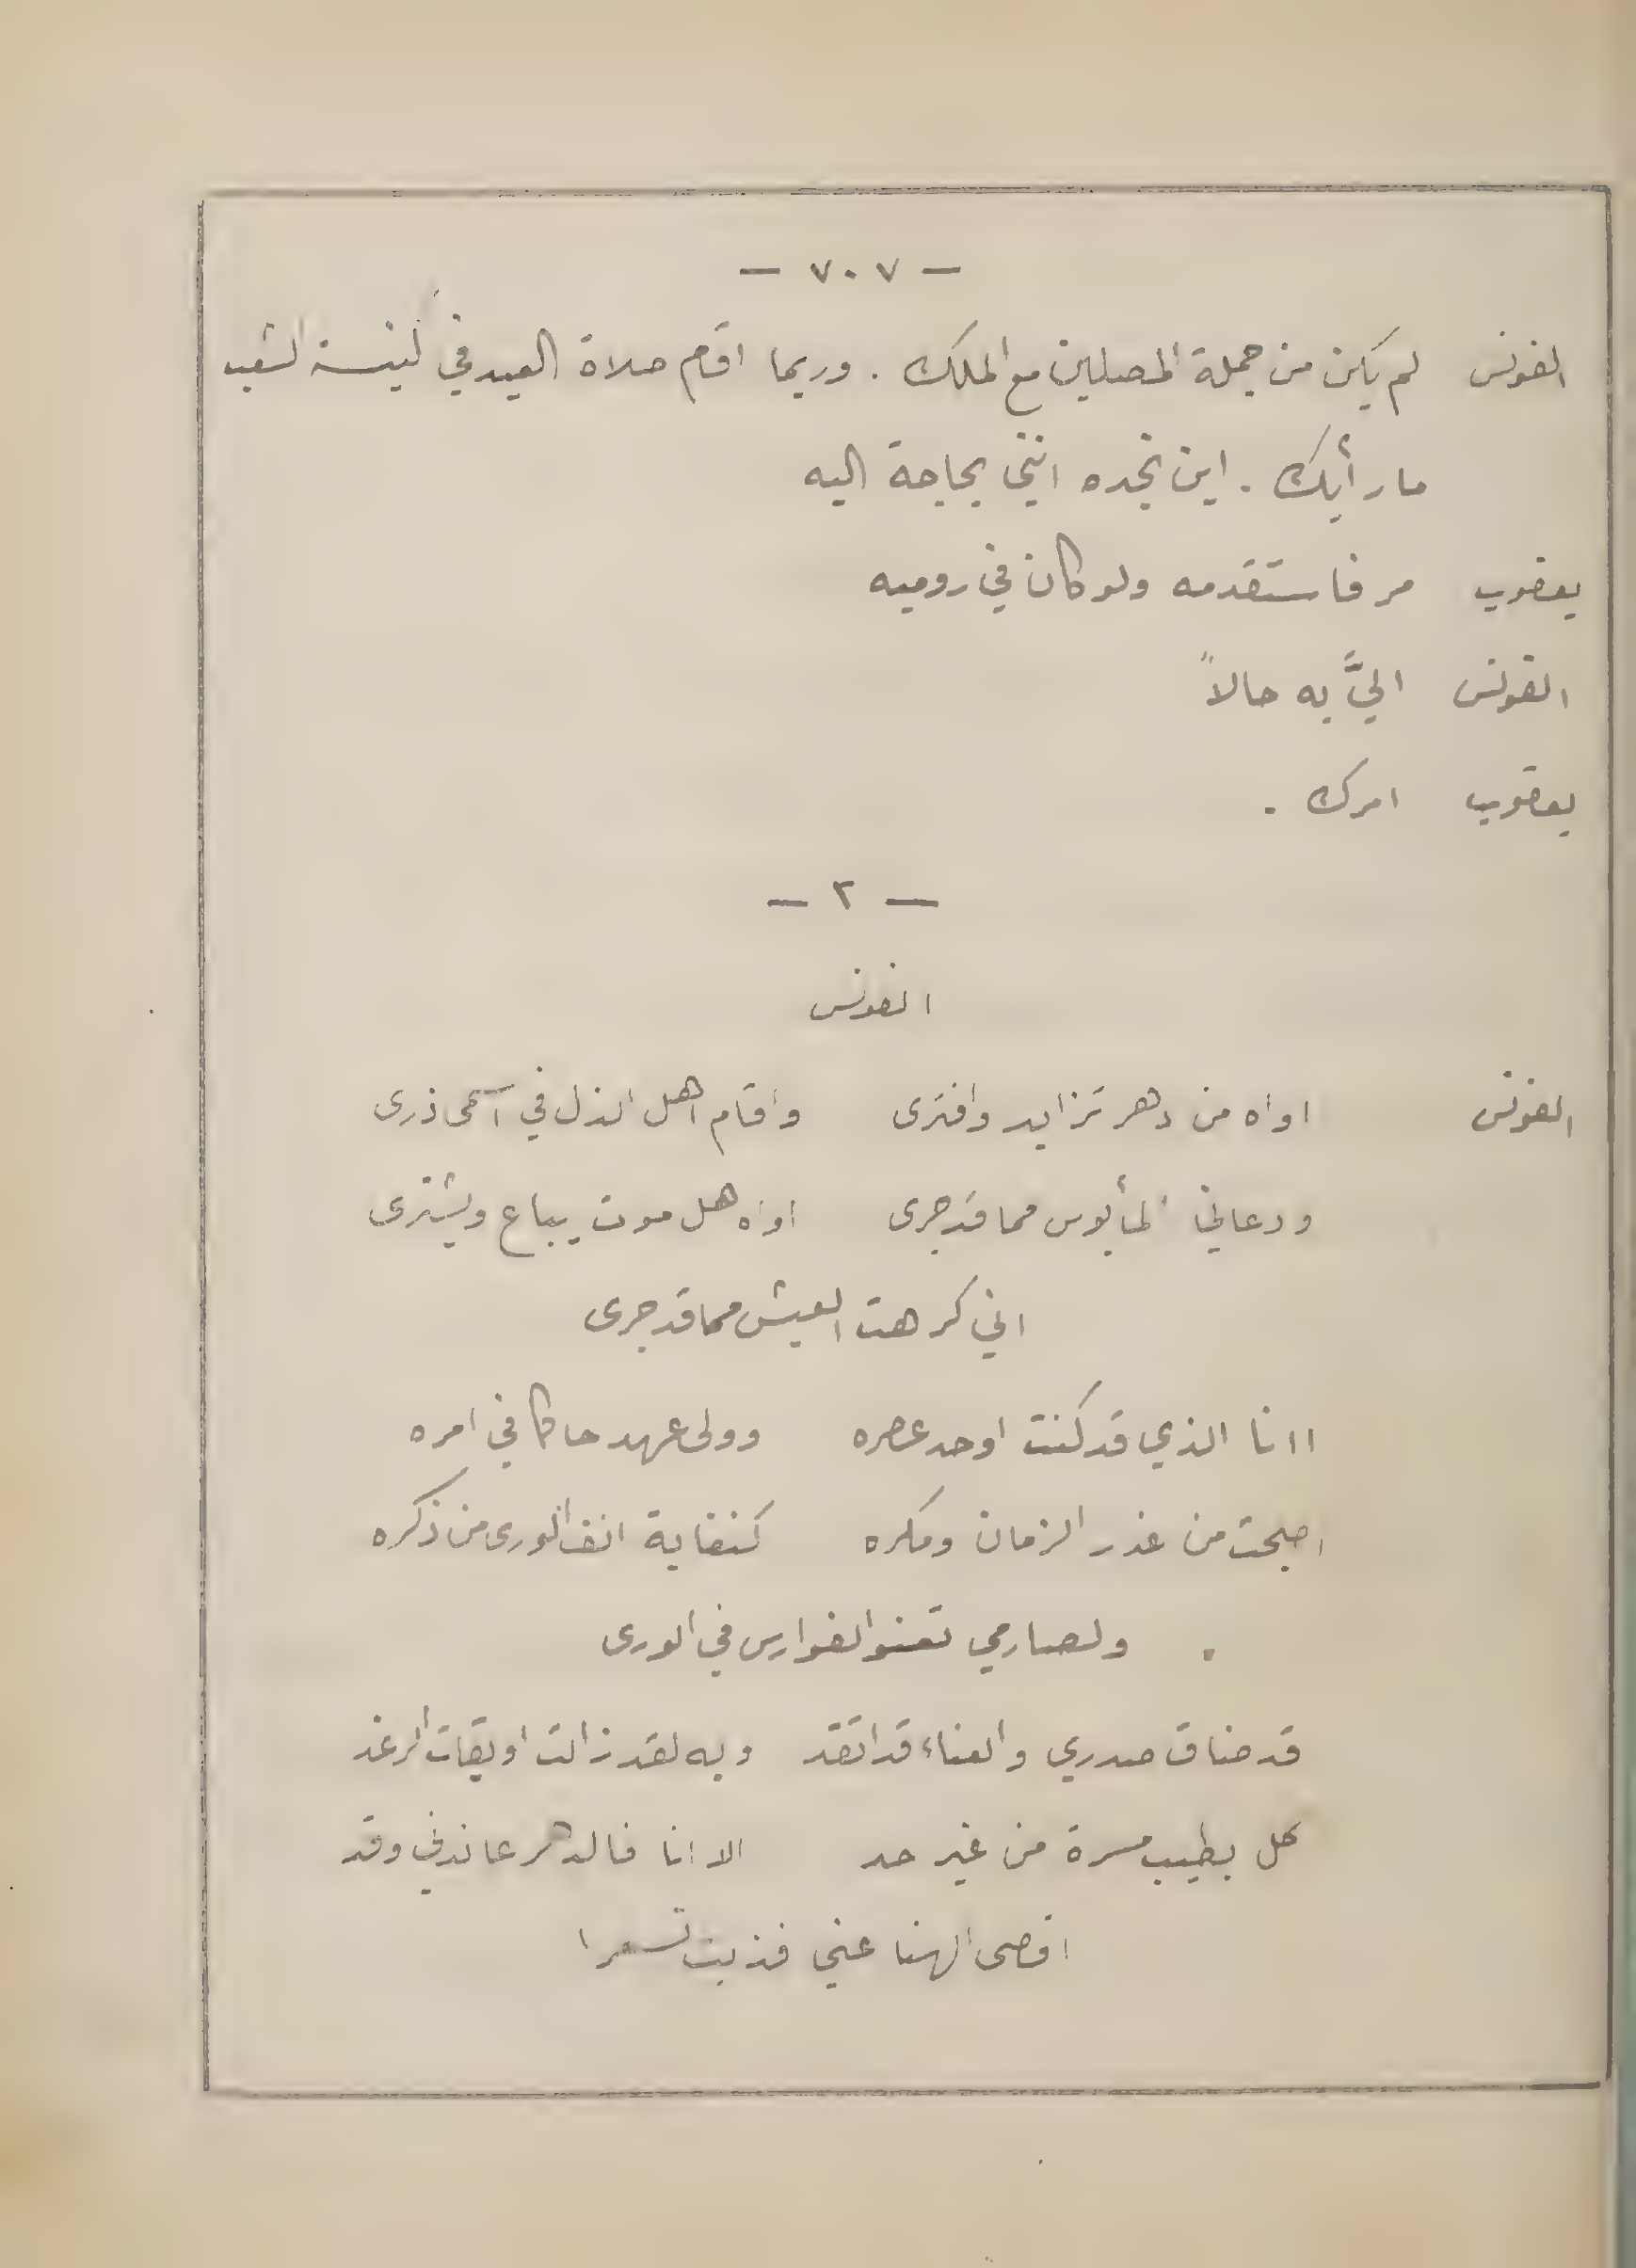 — ٧٠٧ —
الفونس لم يكن من جملة المصلين مع الملك . وربما اقام صلاة العيد في كنيسة الشعب
ما رأيك . اين نجده انني بحاجة اليه
يعقوب مر فاستقدمه ولو كان في روميه
الفونس اليَّ به حالاً
يعقوب امرك .
— ٢ —
الفونس
الفونس اواه من دهر تزايد وافترى واقام اهل النذل في آسمى ذرى
ودعاني المأيوس مما قد جرى اواه هل موت يباع ويشترى
اني كرهت العيش مما قد جرى
اانا الذي قد كنت اوحد عصره وولى عهد حاكما في امره
اصبحت من غدر الزمان ومكره كنفاية انف الورى من ذكره
ولصارمي تعنو الفوارس في الورى
قد ضاق صدري والعناء قد اتقد وبه لقد زالت اويقات الرغد
كل بطيب مسرة من غير حد الا انا فالدهر عاندني وقد
اقصى الهنا عني فذبت تسعرا